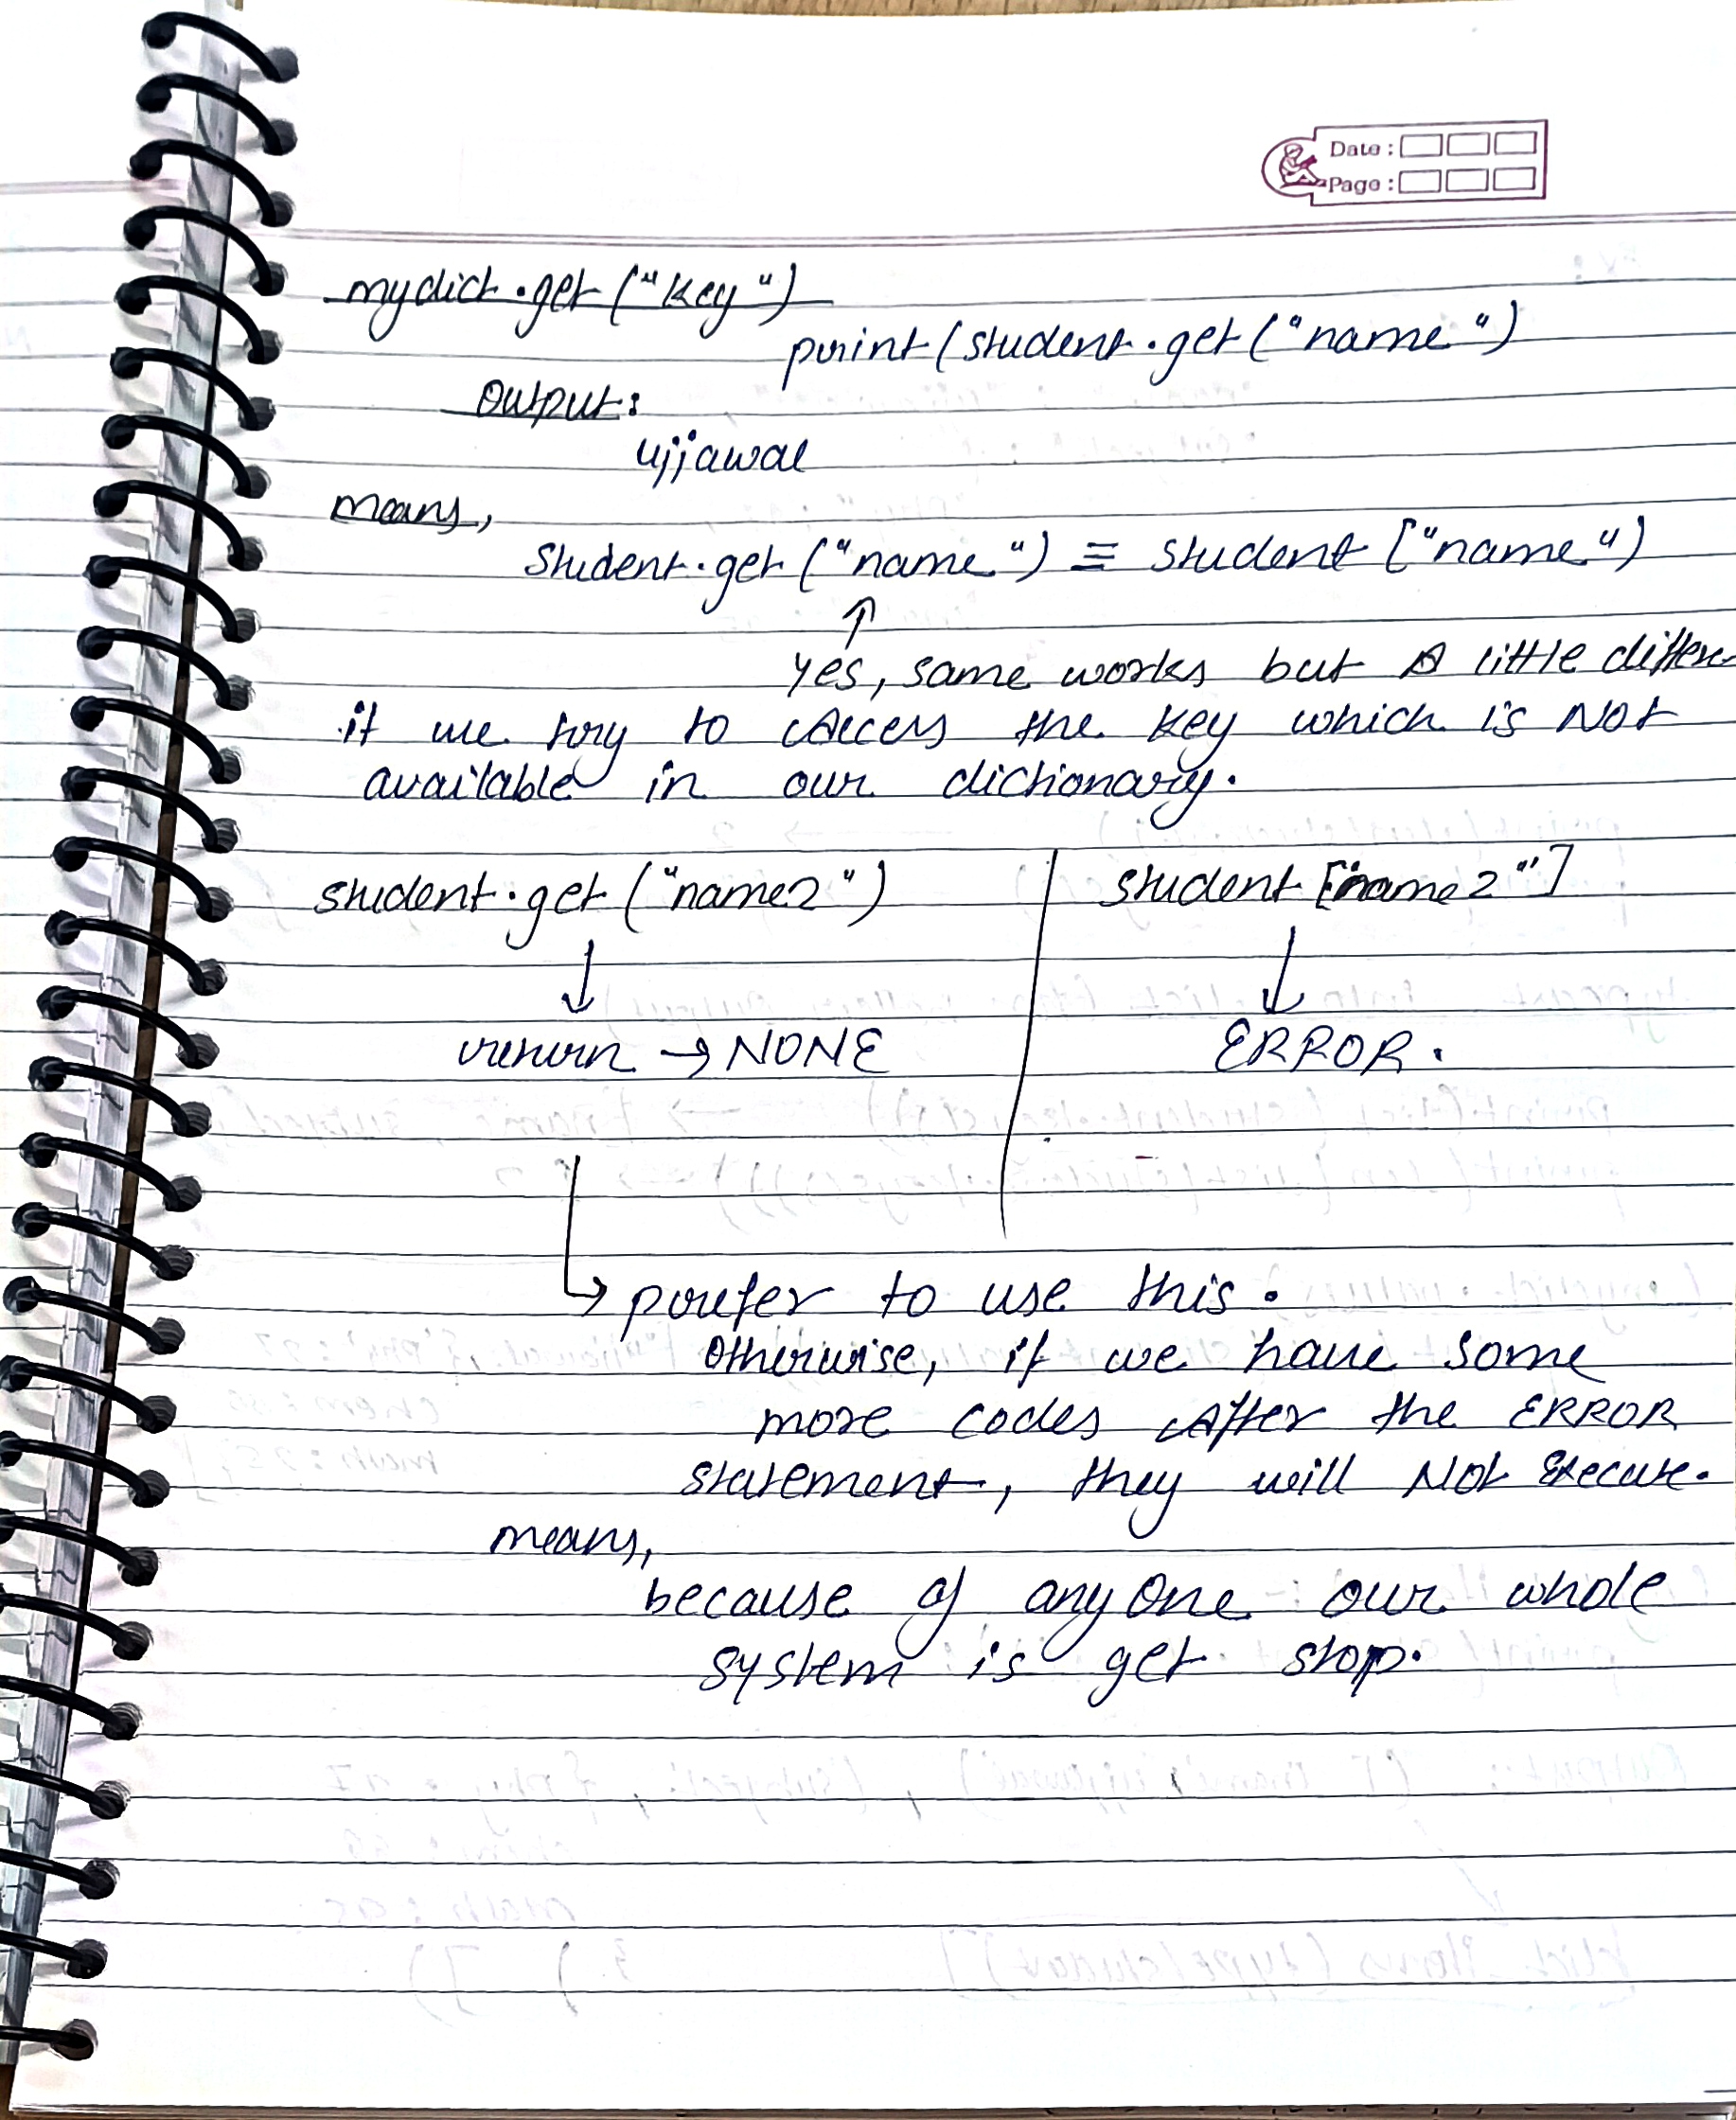 Date :
Page :
mydict.get("key")
print(student.get("name")
Output:
ujjawal
means,
Student.get("name") ≡ student ["name")
↑
yes, same works but A little differe
if we try to Access the key which is Not
available in our dictionary.
student.get("name2") | student ["name2"]
↓ ↓
return → NONE ERROR.
↳ prefer to use this.
Otherwise, if we have some
more codes After the ERROR
statement, they will Not Execute.
means,
because of any One our whole
system is get stop.